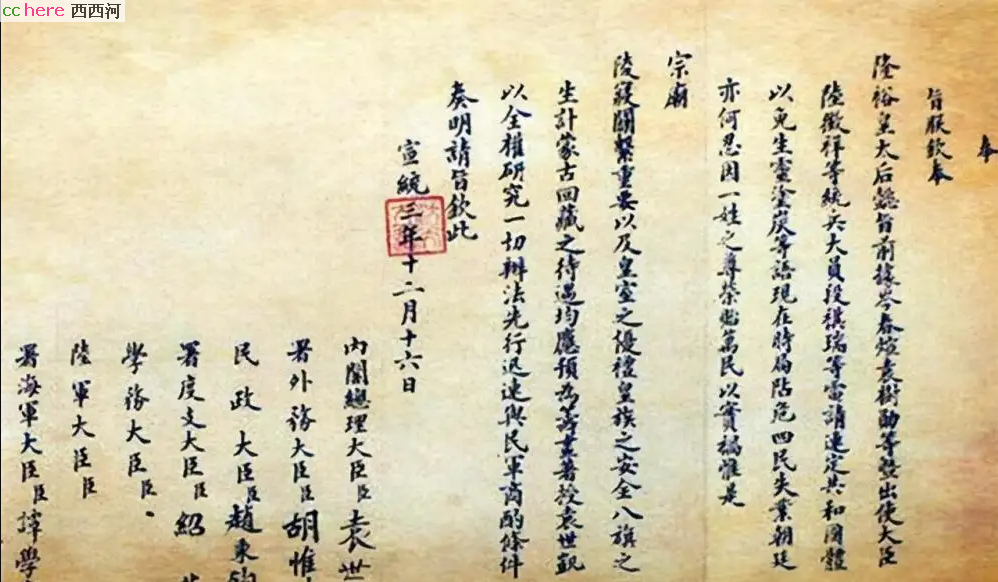 cchere 西西河
奉
旨朕欽奉
隆裕皇太后懿旨前據岑春煊袁樹勛等暨出使大臣
陸徵祥等統兵大員段祺瑞等電請速定共和國體
以免生靈塗炭等語現在時局阽危四民失業朝廷
亦何忍因一姓之尊榮貽萬民以實禍惟是
宗廟
陵寢關繫重要以及皇室之優禮皇族之安全八旗之
生計蒙古回藏之待遇均應預為籌畫著授袁世凱
以全權研究一切辦法先行迅速與民軍商酌條件
奏明請旨欽此
宣統三年十二月十六日
內閣總理大臣臣袁世
署外務大臣臣胡惟
民政大臣臣趙秉鈞
署度支大臣臣紹
學務大臣臣
陸軍大臣臣
署海軍大臣臣譚學